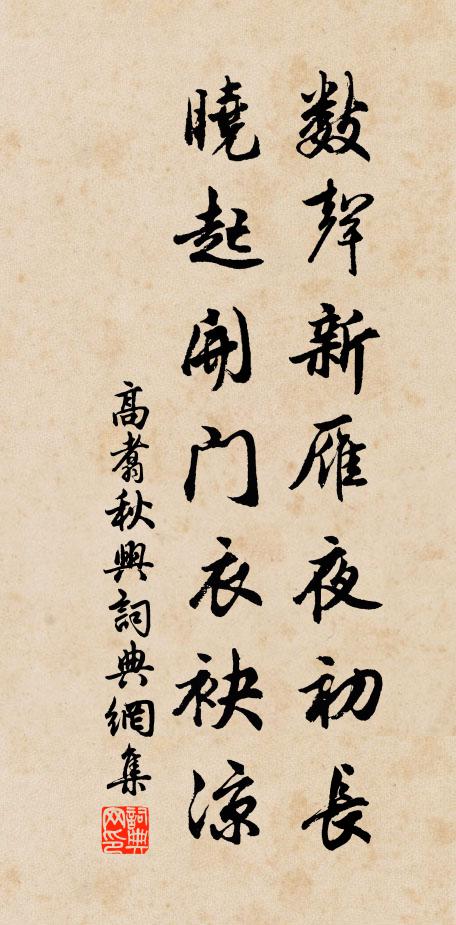 數聲新雁夜初長
曉起開門衣袂涼
高翥秋興詞典網集
詞典网印